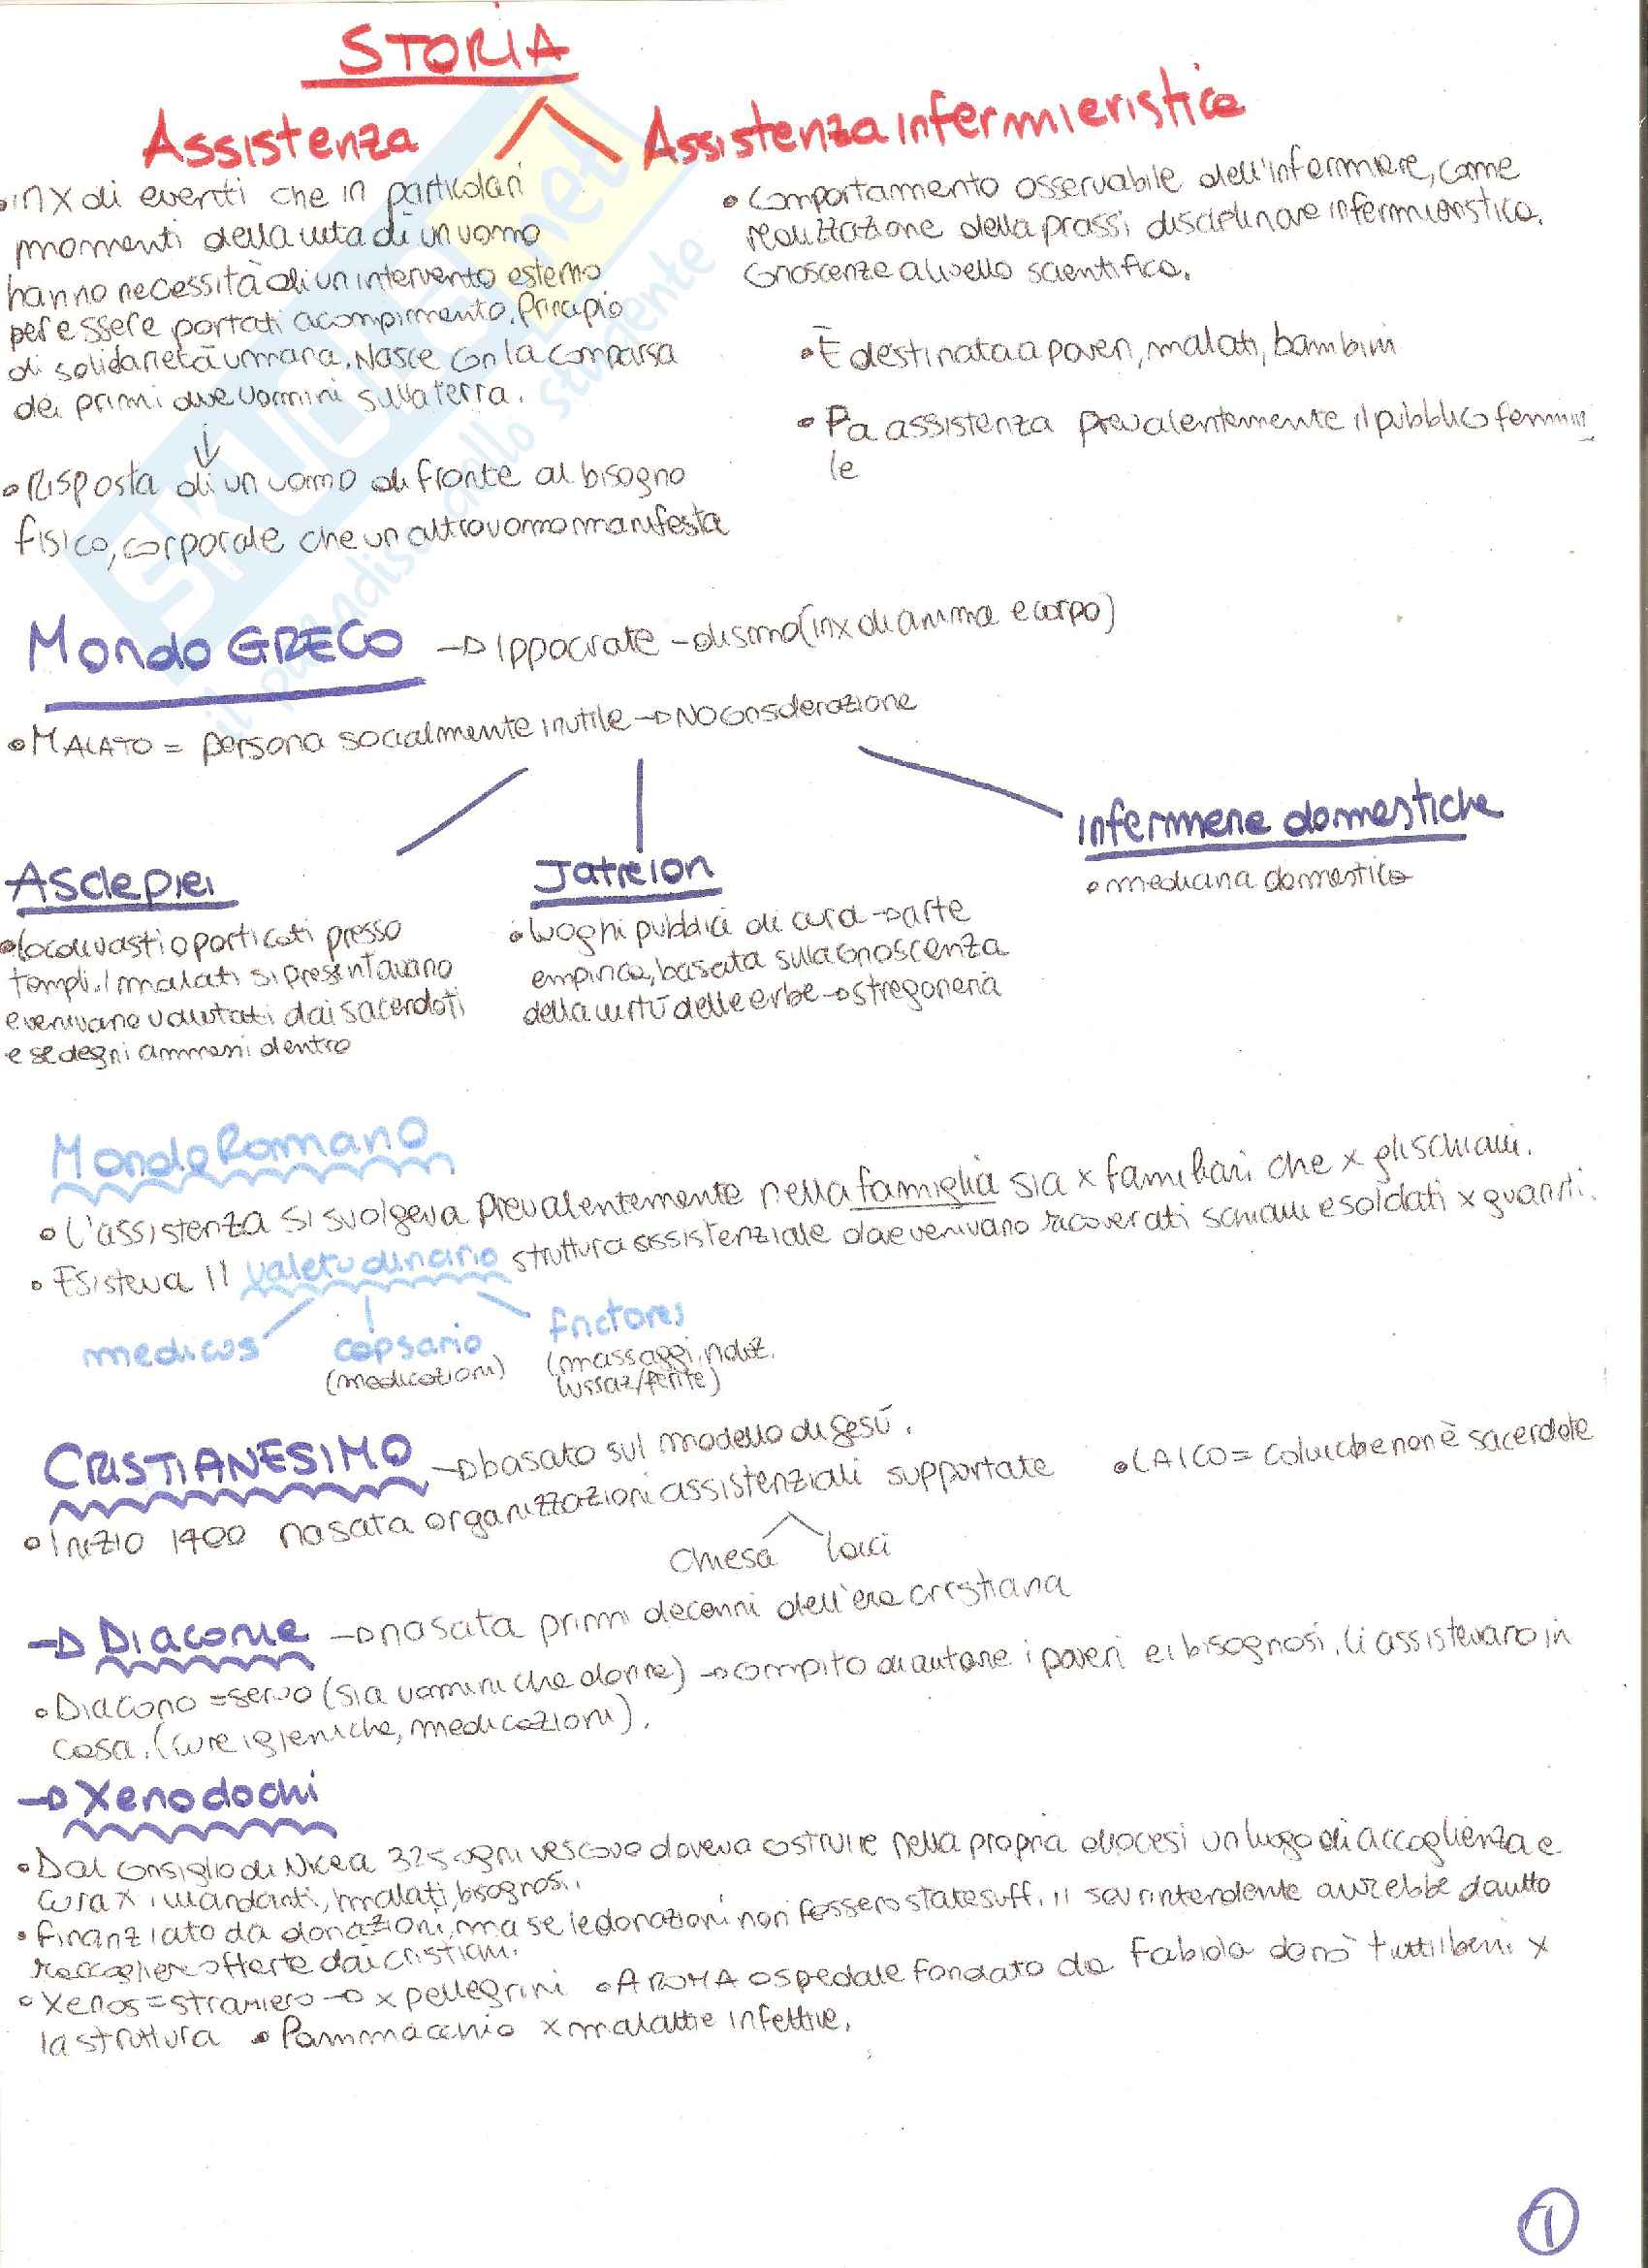 STORIA
Assistenza
• inx di eventi che in particolari
momenti della vita di un uomo
hanno necessità di un intervento esterno
per essere portati a compimento. Principio
di solidarietà umana. Nasce con la comparsa
dei primi due uomini sulla terra.
↓
• Risposta di un uomo di fronte al bisogno
fisico, corporale che un altro uomo manifesta
Assistenza infermieristica
• Comportamento osservabile dell'infermiere, come
realizzazione della prassi disciplinare infermieristica.
Conoscenze a livello scientifico.
• È destinata a poveri, malati, bambini
• Fa assistenza prevalentemente il pubblico femmini
le
Mondo GRECO → Ippocrate - olismo (inx di anima e corpo)
• MALATO = persona socialmente inutile → NO considerazione
Asclepiei
• locali vasti o porticati presso
templi. I malati si presentavano
e venivano valutati dai sacerdoti
e se degni ammessi dentro
Jatreion
• luoghi pubblici di cura → arte
empirica, basata sulla conoscenza
della virtù delle erbe → stregoneria
infermerie domestiche
• medicina domestica
Mondo Romano
• L'assistenza si svolgeva prevalentemente nella famiglia sia x familiari che x gli schiavi.
• Esisteva il valetudinario struttura assistenziale dove venivano ricoverati schiavi e soldati x guarirli.
medicus
capsario
(medicazioni)
frictores
(massaggi, riduz.
lussaz/ferite)
CRISTIANESIMO → basato sul modello di Gesù.
• Inizio 1400 nascata organizzazioni assistenziali supportate
Chiesa laici
• LAICO = colui che non è sacerdote
→ Diaconie → nascata primi decenni dell'era cristiana
• Diacono = servo (sia uomini che donne) → compito di aiutare i poveri e i bisognosi. Li assistevano in
casa. (cure igieniche, medicazioni).
→ Xenodochi
• Dal Consiglio di Nicea 325 ogni vescovo doveva costruire nella propria diocesi un luogo di accoglienza e
cura x i viandanti, malati, bisognosi.
• Finanziato da donazioni, ma se le donazioni non fossero state suff. il sovrintendente avrebbe dovuto
raccogliere offerte dai cristiani.
• Xenos = straniero → x pellegrini • A ROMA ospedale fondato da Fabiola donò tutti i beni x
la struttura • Pammacchio x malattie infettive.
1
SKUOLA.net
il paradiso dello studente